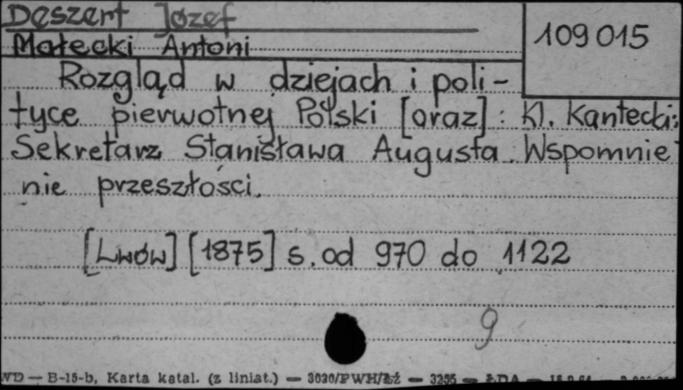 Deszert Józef
109015
Małecki Antoni
Rozgląd w dziejach i poli-
tyce pierwotnej Polski [oraz]: Kl. Kantecki:
Sekretarz Stanisława Augusta. Wspomnie
nie przeszłości.
[Lwów] [1875] s. od 970 do 1122
9
WD — B-15-b, Karta katal. (z liniat.) — 3030/PWH/Łż — 3255 — ŁDA —